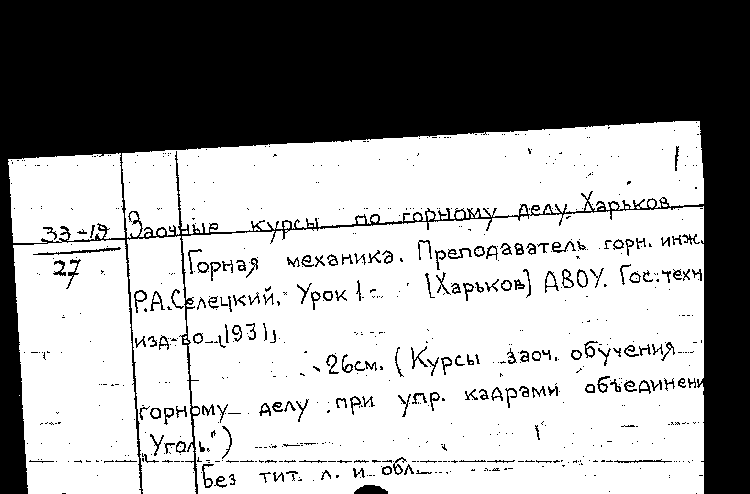 1
33-19
27
Заочные курсы по горному делу. Харьков.
Горная механика. Преподаватель горн. инж.
Р.А.Селецкий. Урок 1- [Харьков] ДВОУ. Гос. техн
изд-во [1931]
26см. (Курсы заоч. обучения
горному делу при упр. кадрами объединени
"Уголь.")
Без тит. л. и обл.